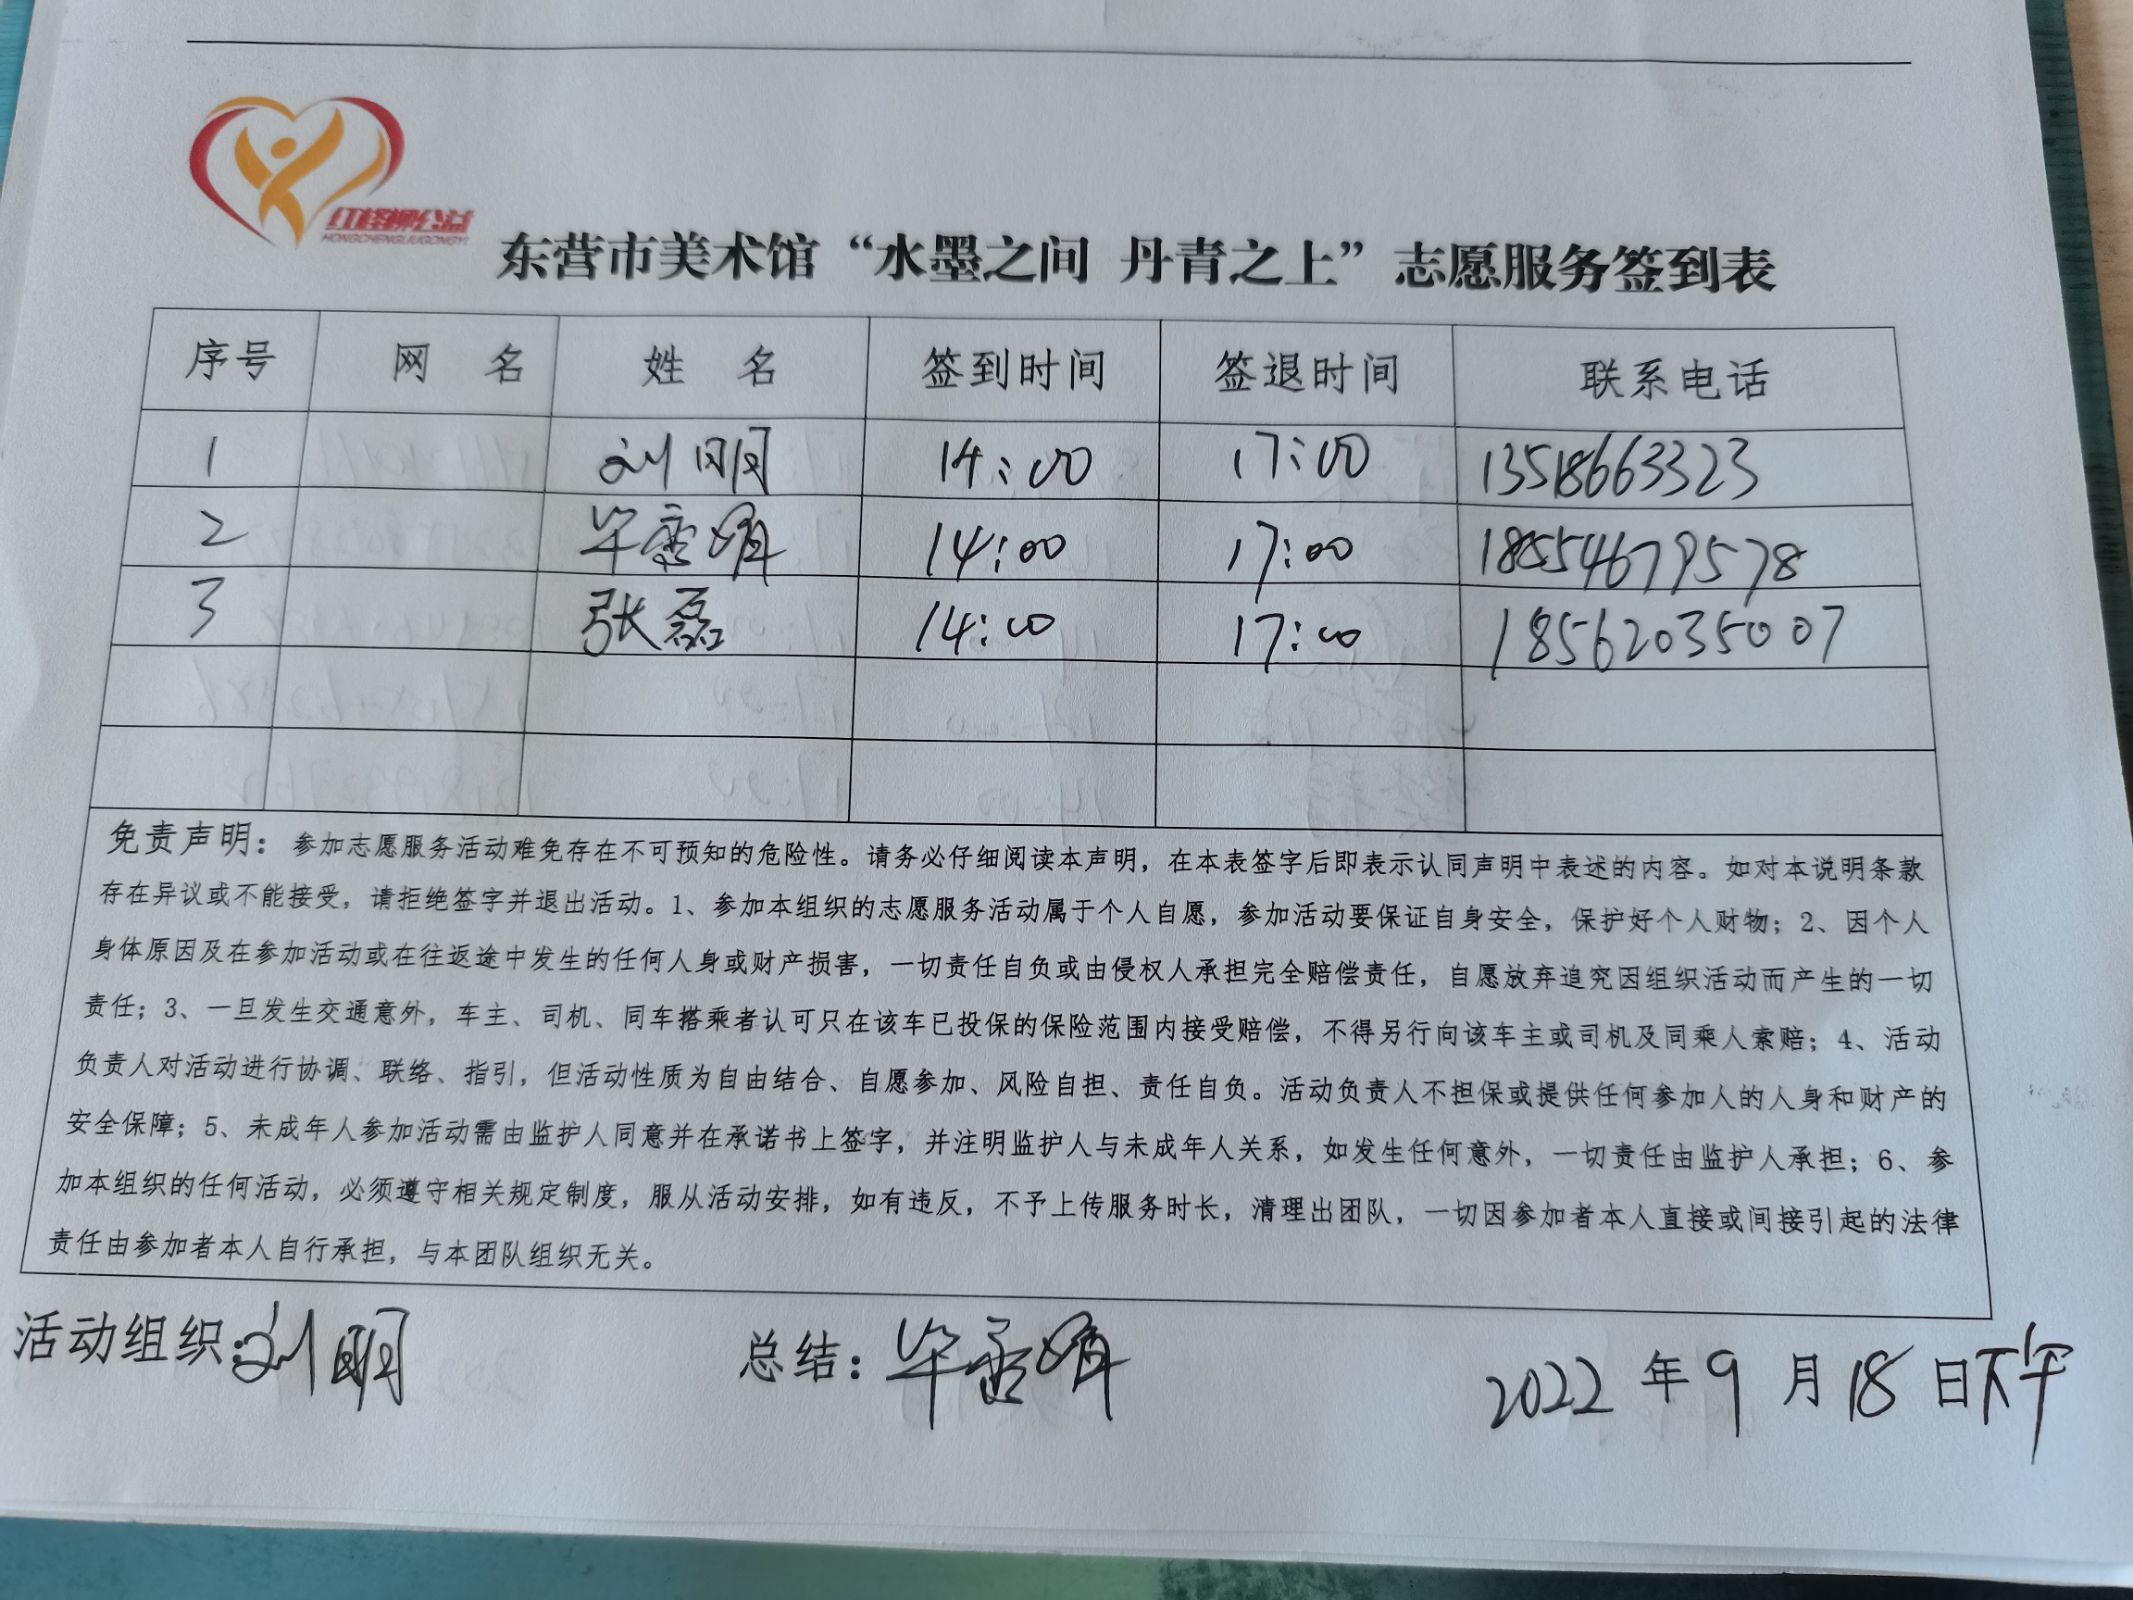 HONGCHENGLIUGONGYI
东营市美术馆“水墨之间 丹青之上”志愿服务签到表
序号 网 名 姓 名 签到时间 签退时间 联系电话
1 刘明 14:00 17:00 13518663323
2 毕 娟 14:00 17:00 18554679578
3 张磊 14:00 17:00 18562035007
免责声明：参加志愿服务活动难免存在不可预知的危险性。请务必仔细阅读本声明，在本表签字后即表示认同声明中表述的内容。如对本说明条款
存在异议或不能接受，请拒绝签字并退出活动。1、参加本组织的志愿服务活动属于个人自愿，参加活动要保证自身安全，保护好个人财物；2、因个人
身体原因及在参加活动或在往返途中发生的任何人身或财产损害，一切责任自负或由侵权人承担完全赔偿责任，自愿放弃追究因组织活动而产生的一切
责任；3、一旦发生交通意外，车主、司机、同车搭乘者认可只在该车已投保的保险范围内接受赔偿，不得另行向该车主或司机及同乘人索赔；4、活动
负责人对活动进行协调、联络、指引，但活动性质为自由结合、自愿参加、风险自担、责任自负。活动负责人不担保或提供任何参加人的人身和财产的
安全保障；5、未成年人参加活动需由监护人同意并在承诺书上签字，并注明监护人与未成年人关系，如发生任何意外，一切责任由监护人承担；6、参
加本组织的任何活动，必须遵守相关规定制度，服从活动安排，如有违反，不予上传服务时长，清理出团队，一切因参加者本人直接或间接引起的法律
责任由参加者本人自行承担，与本团队组织无关。
活动组织：刘明 总结：毕 娟 2022年9月18日下午